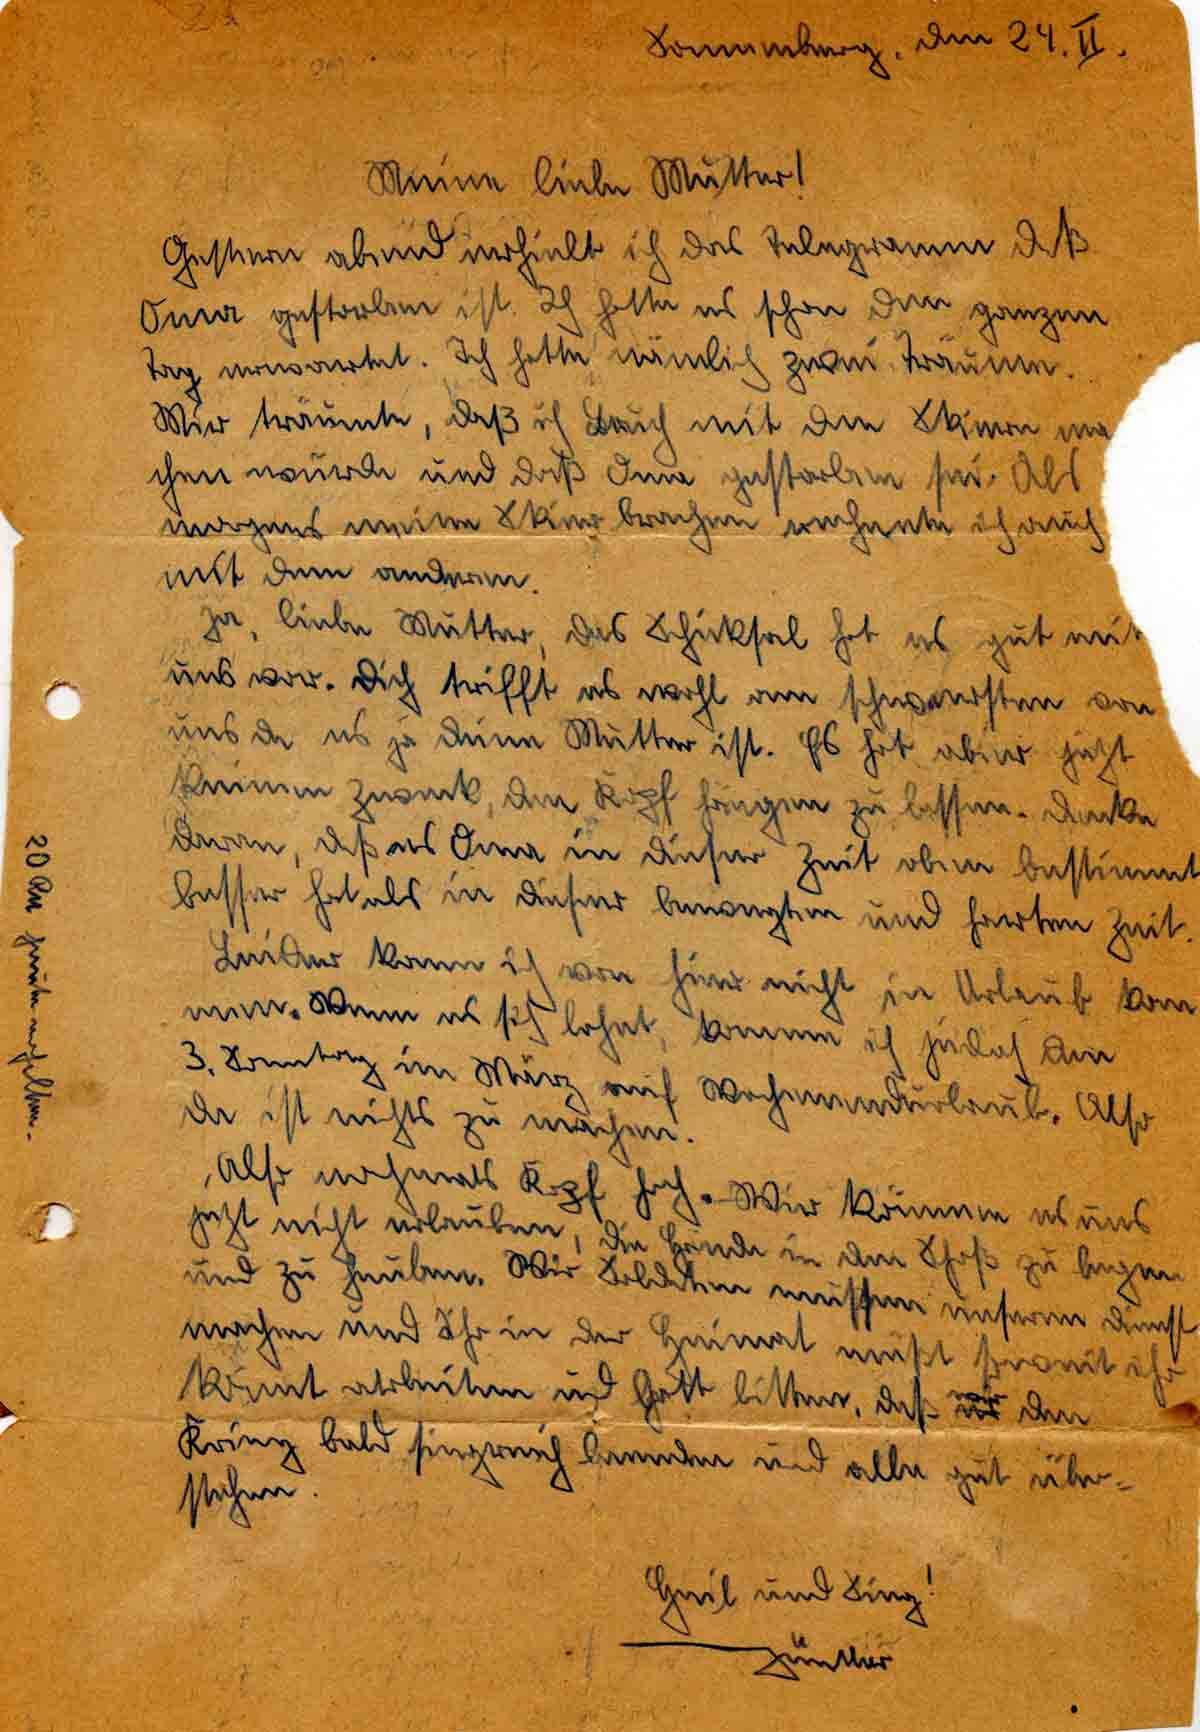 Sonnenberg, den 24. II.
Meine liebe Mutter!
Gestern abend erhielt ich das Telegramm daß
Oma gestorben ist. Ich hatte es schon den ganzen
Tag erwartet. Ich hatte nämlich zwei Träume.
Mir träumte, daß ich Bruch mit den Skiern ma
chen würde und daß Oma gestorben sei. Als
morgens meine Skier brachen rechnete ich auch
mit dem anderen.
Ja, liebe Mutter, das Schicksal hat es gut mit
uns vor. Dich trifft es wohl am schwersten von
uns da es ja deine Mutter ist. Es hat aber jetzt
keinen Zweck, den Kopf hängen zu lassen. Denke
daran, daß es Oma in dieser Zeit oben bestimmt
besser hat als in dieser bewegten und harten Zeit.
Leider kann ich von hier nicht in Urlaub kom
men. Wenn es sich lohnt, komme ich jedoch am
3. Sonntag im März auf Wochenendurlaub. Also
da ist nichts zu machen.
Also nochmals Kopf hoch. Wir können es uns
jetzt nicht erlauben, die Hände in den Schoß zu legen
und zu heulen. Wir Soldaten müssen unseren Dienst
machen und Ihr in der Heimat müßt soweit ihr
könnt arbeiten und Gott bitten, daß wir den
Krieg bald siegreich beenden und alle gut über-
stehen.
Heil und Sieg!
Günther
20 RM heute erhalten.